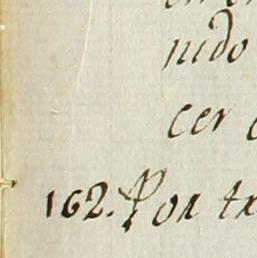 nido
cer
162. Por tr